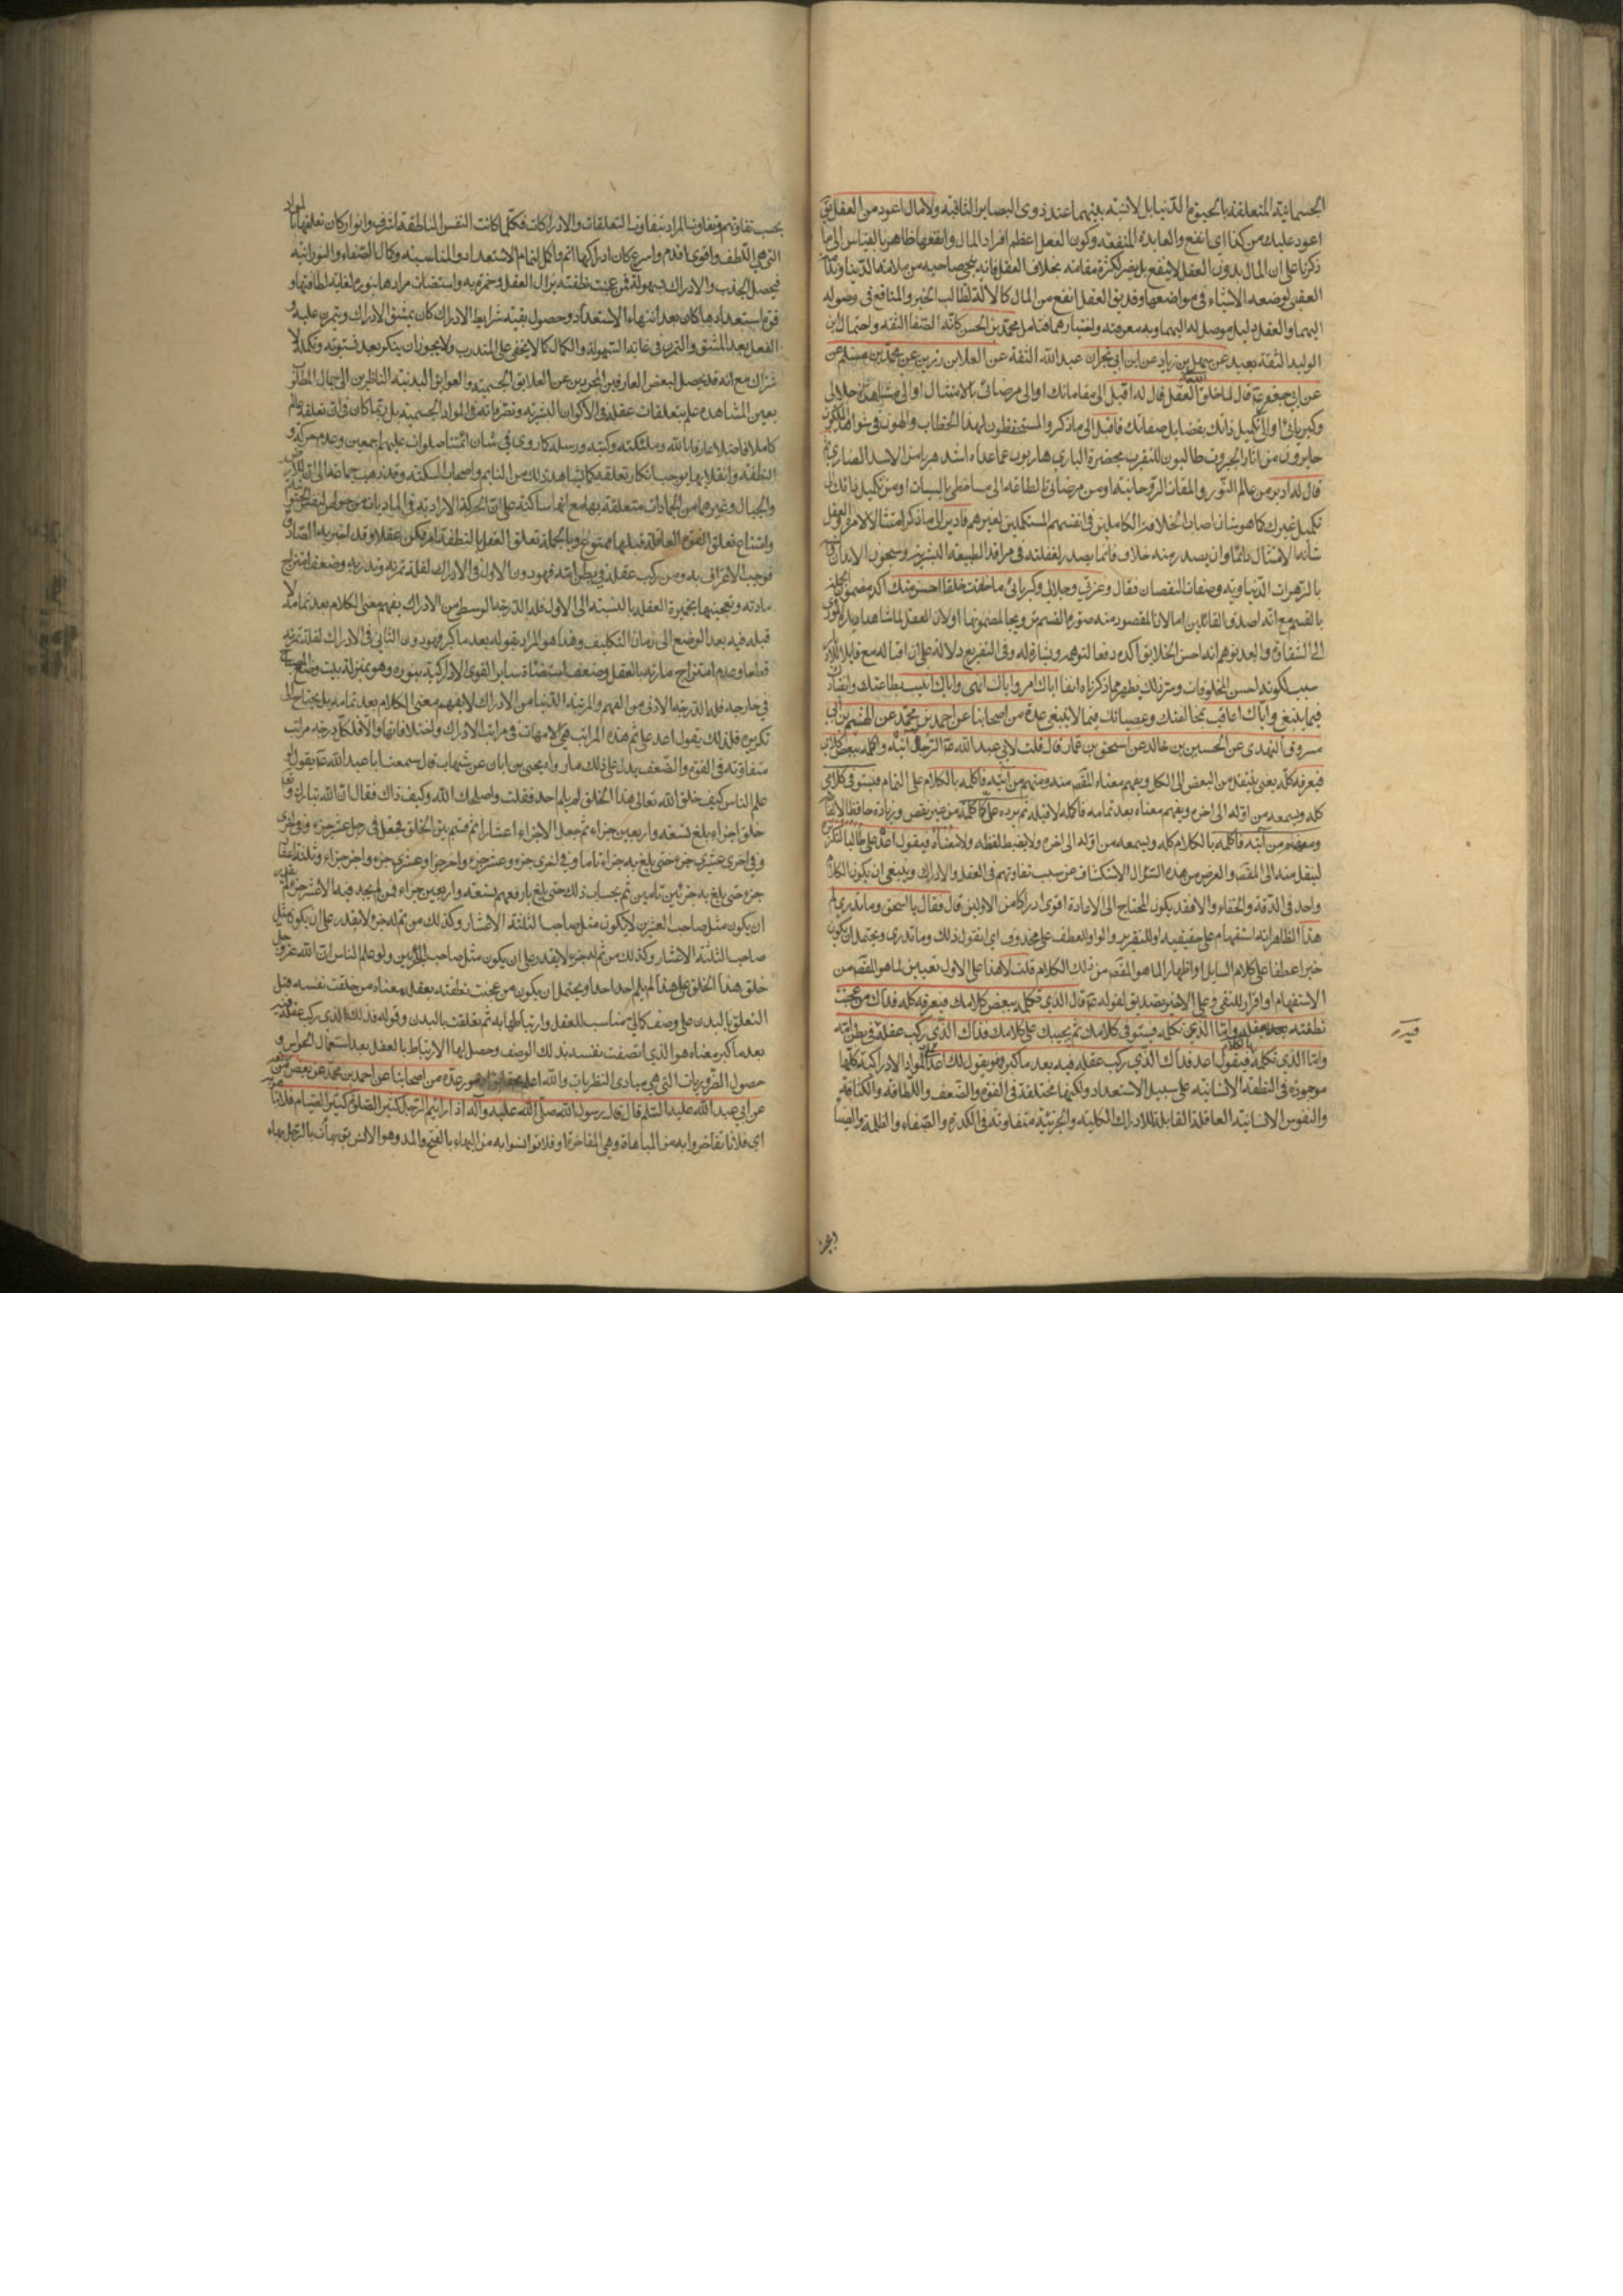 الجسمانية المتعلقة بالحيوة الدنيا بل لا نسبة بينهما عند ذوى البصاير الثاقبة ولا مال اعود من العقل يق
اعود عليك من كذا اى انفع والعايدة المنفعة وكون العقل اعظم افراد المال وانفعها ظاهر بالقياس الى ما
ذكرنا على ان المال بدون العقل لا ينفع بل يضر لكثرة مفاسده بخلاف العقل فانه ينجى صاحبه من
العقبى لوضعه الاشياء فى مواضعها وقد يق العقل انفع من المال لان المال كالالة لطالب الخير والمنافع فى وصوله
اليهما والعقل دليل موصل له اليهما وبه معرفته واختيارهما فتامل محمد بن الحسن كانه الصفا الثقة واحتمال ابن
الوليد الثقة بعيد عن سهل بن زياد عن ابن ابى نجران عبد الله الثقة عن العلا بن رزين عن محمد بن مسلم عن
عن ابى جعفر ع قال لما خلق الله العقل قال له اقبل الى مقاماتك او الى مرضاتى بالامتثال او الى مشاهدة جلالى
وكبريائى او الى تكميل ذاتك بفضايل صفاتك فاقبل الى ما ذكر والمستحفظون لهذا الخطاب
حايرون من اثار الجبروت طالبون للتقرب بحضرة البارى هاربون عما عداه اشد هربا من الاسد الضارى ثم
قال له ادبر من عالم النور والمقامات الروحانية او من مرضاتى الطاعة الى مساخطى بالسيئات او من تكميل ذاتك الى
تكميل غيرك كما هو شان اصحاب الخلافة الكاملين فى انفسهم المستكملين لغيرهم فادبر الى ما ذكر امتثالا لامره والعقل
شأنه الامتثال دائما وان يصدر منه خلاف فانما يصدر لغفلته فى مراقد الطبيعة البشرية وسجون الابدان
بالزهرات الدنياوية وصفات النقصان فقال وعزتى وجلالى وكبريائى ما خلقت خلقا احسن منك اكد مضمون الجملة
بالقسم مع انه اصدق القائلين اما لان المقصود منه صورة القسم ترويجا لمضمونها او لان العقل لما شاهد
الى الشقاوة والبعد توهم انه احسن الخلايق اكده دفعا لتوهم وبشارة له وفى التفريع دلالة على ان اقباله مع
سبب لكونه احسن المخلوقات وسر ذلك يظهر مما ذكرناه انفا اياك امر واياك انهى واياك اثيب بطاعتك وانقيادك
فيما ينبغى واياك اعاقب بمخالفتك وعصيانك فيما لا ينبغى عدة من اصحابنا عن احمد بن محمد عن الهيثم بن ابى
مسروق النهدى عن الحسين بن خالد عن اسحق بن عمار قال قلت لابى عبد الله ع الرجل آتيه واكلمه ببعض كلامى
فيعرفه كله يعنى ينتقل من البعض الى الكل ويفهم معناه المقص منه ومنهم من آتيه فاكلمه بالكلام على التمام فيستوفى كلامى
كله ويسمعه من اوله الى اخره ويفهم معناه بعد تمامه فاكلمه لا قبله ثم يرده على كما كلمته من غير نقص وزيادة حافظا
ومنهم من آتيه فاكلمه بالكلام كله ويسمعه من اوله الى اخره ولا يضبط لفظه ولا معناه فيقول اعد على طالبا لتكرير
لينتقل منه الى المقص والغرض من هذا السؤال الاستكشاف عن سبب تفاوتهم فى العقل والادراك وينبغى ان يكون الكلام
واحد فى الدقة والخفاء والا فقد يكون المحتاج الى الاعادة اقوى ادراكا من الاولين قال فقال يا اسحق وما تدرى لم
هذا الظاهر انه استفهام على حقيقته او للتقرير والواو للعطف على محذوف اى اتقول ذلك وما تدرى ويحتمل ان يكون
خبرا عطفا على كلام السايل او اظهارا لما هو المقص من ذلك الكلام قلت لا هذا على الاول تعيين لما هو المقص من
الاستفهام او اقرار للنفى وعلى الاخير تصديق لقوله ع قال الذى تكلمه ببعض كلامك فيعرفه كله فذاك من عجنت
نطفته بعقله واما الذى تكلمه فيستوفى كلامك ثم يجيبك على كلامك فذاك الذى ركب عقله فى بطن امه
واما الذى تكلمه بالكلام فيقول اعد فذاك الذى ركب عقله فيه بعد ما كبر فهو يقول لك اعد المواد الادراكية كلها
موجودة فى النطفة الانسانية على سبيل الاستعداد ولكنها مختلفة فى القوة والضعف واللطافة والكثافة
والنفوس الانسانية العاقلة القابلة للادراك الكلية والجزئية متفاوتة فى الكدرة والصفاء والظلمة والضياء
بحسب تفاوتهم وتفاوت المراد بتفاوت التعلقات والادراكات فكلما كانت النفس الناطقة اشرف وانور كان تعلقها بالمواد
التى هى الطف واقوى اقدم واسرع كان ادراكها اتم واكمل لتمام الاستعداد والمناسبة وكمال الصفاء والنورانية
فيحصل الجذب والادراك بسهولة فمن عجنت نطفته بزلال العقل وخمرته به واستضات مرادها بنوره لغاية لطافتها و
قوة استعدادها كان بعد انتهاء الاستعداد وحصول بقية شرايط الادراك كان يمشق الادراك ويتمرن عليه و
الفعل بعد المشق والتمرن فى غاية السهولة والكمال كما لا يخفى على المتدرب ولا يجوز ان ينكر بعد
مع انه قد يحصل لبعض العارفين المجردين عن العلايق الجسمية والعوايق البدنية الناظرين الى جمال المطلوب
بعين المشاهدة علم بتعلقات عقله فى الاكوان البشرية وتصرفاته فى المواد الجسمية بل ربما كان فى اتى تعلقه عالم
كاملا فاضلا عارفا بالله وملئكته وكتبه ورسله كما روى فى شان ائمتنا صلوات عليهم اجمعين وعدم حركة و
النطفة وانقلابها لا يوجب انكار تعلقه كما نشاهد ذلك من النايم واصحاب السكتة وقد ذهب جماعة الى ان
والجبال وغيرهما من الجمادات متعلقة بها مع انها ساكنة على ان الحركة الارادية فى الماديات من خواص
وامتناع تعلق القوة العاقلة قبلها ممنوع وبالجملة تعلق العقل بالنطفة امر ممكن عقلا وقد اخبر به الصادق
فوجب الاعتراف به ومن ركب عقله فى بطن امه فهو دون الاول فى الادراك لقلة تمرنه وتدربه وضعف امتزاج
مادته وتعجينها بخميرة العقل بالنسبة الى الاول فله الدرجة الوسطى من الادراك يفهم معنى الكلام بعد تمامه لا
قبله فيه بعد الوضع الى زمان التكليف وهذا هو المراد بقوله بعد ما كبر فهو دون الثانى فى الادراك لقلة تمرنه
وعدم امتزاج مادته بالعقل وضعف استضاءة ساير القوى الادراكية بنوره وهو بمنزلة بيت وضع السراج
فى خارجه فله الدرجة الادنى من الفهم والمرتبة الدنيا من الادراك لا يفهم معنى الكلام بعد تمامه بل يحتاج الى
تكريره فلذلك يقول اعد على ثم هذه المراتب هى الامهات فى مراتب الادراك واختلافاتها والا فلكل درجة مراتب
متفاوتة فى القوة والضعف يدل على ذلك ما رواه يحيى بن ابان عن شهاب قال سمعت ابا عبد الله ع يقول لو
علم الناس كيف خلق الله تعالى هذا الخلق لم يلم احد احدا فقلت اصلحك الله وكيف ذاك فقال ان الله تبارك وتعالى
خلق اجزاء بلغ تسعة واربعين جزاء ثم جعل الاجزاء اعشارا ثم قسم بين الخلق فجعل فى رجل عشر جزء وفى اخر
وفى اخر عشرى جزء حتى بلغ به جزاء تاما وفى اخر جزء وعشر جزء واخر جزا وعشرى جزء واخر جزاء وثلثة اعشار
جزء حتى بلغ به جزئين تامين ثم بحساب ذلك حتى بلغ بارفعهم تسعة واربعين جزاء فمن لم يجعل فيه الا عشر جزء لم يقدر على
ان يكون مثل صاحب العشرين لا يكون مثل صاحب الثلثة الاعشار وكذلك من تم له جزء لا يقدر على ان يكون مثل
صاحب الثلثة الاعشار وكذلك من تم له جزء لا يقدر على ان يكون مثل صاحب الجزئين ولو علم الناس ان الله عز وجل
خلق هذا الخلق على هذا لم يلم احد احدا ويحتمل ان يكون من عجنت نطفته بعقله معناه من خلقت نفسه قبل
التعلق بالبدن على وصف كمالى مناسب للعقل وارتباطها به ثم تعلقت بالبدن وقوله فذلك الذى ركب عقله فيه
بعد ما كبر معناه هو الذى اتصفت نفسه بذلك الوصف وحصل لها الارتباط بالعقل بعد استعمال الحواس و
حصول الضروريات التى هى مبادى النظريات والله اعلم عدة من اصحابنا عن احمد بن محمد عن بعض من رفعه
عن ابى عبد الله عليه السلم قال قال رسول الله صلى الله عليه وآله اذا رايتم الرجل كثير الصلوة كثير الصيام فلا تباهوا به
اى فلا تفاخروا به من المباهاة وهى المفاخرة او فلا تؤانسوا به من البهاء بالفتح والمد وهو الانس يق بهأت بالرجل بهاء